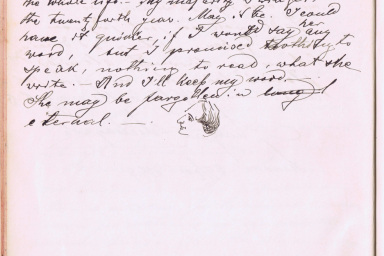 the whole life. - Thy majority I
the twenty forth year. May is be. I could
have it quicker, if I would say her any
word, but I promised nothing to
speak, nothing to read, what she
write. - And I'll keep my word. -
She may be forgotten in
eternal. - . -